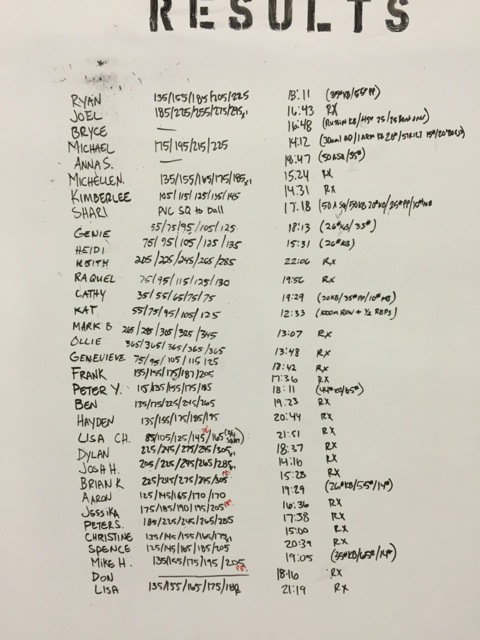 RESULTS
RYAN 135/155/185/205/225 18:11
JOEL 185/225/255/275/295x1 16:43 RX
BRYCE — 16:48
MICHAEL 175/195/215/225 14:12
ANNA S. — 18:47 (50 ASQ/35#)
MICHELLE N. 135/155/165/175/185x1 15:24 RX
KIMBERLEE 105/115/125/135/145 14:31 RX
SHARI PVC SQ to Ball 17:18
GENIE 55/75/95/105/125 18:13 (26#KB/35#)
HEIDI 75/95/105/125/135 15:31 (26#KB)
KEITH 205/225/245/265/285 22:06 RX
RAQUEL 75/95/115/125/130 19:56 RX
CATHY 35/55/65/75/75 19:29
KAT 55/75/95/105/125 12:33 (1000m ROW + 1/2 REPS)
MARK B 265/285/305/325/345 13:07 RX
OLLIE 365/365/365/365/365 13:48 RX
GENEVIEVE 75/95/105/115/125 18:42 RX
FRANK 135/145/175/187/205 17:36 RX
PETER Y. 115/135/155/175/185 18:11 (44#KB/65#)
BEN 135/175/225/245/265 19:23 RX
HAYDEN 135/155/175/185/195 20:44 RX
LISA CH. 85/105/125/145/165 21:51 RX
DYLAN 225/245/275/295/305x1 18:37 RX
JOSH H. 205/225/245/265/285x1 14:16 RX
BRIAN K 225/245/275/295/305 15:28 RX
AARON 125/145/165/170/170 19:29 (26#KB/55#/14#)
Jessika 175/185/190/195/205 16:36 RX
PETER S. 184/225/245/265/285 17:38 RX
CHRISTINE 135/145/155/165/175x1 15:00 RX
SPENCE 125/145/165/185/205 20:39 RX
MIKE H. 135/155/175/195/205 19:05 (35#KB/65#/14#)
DON — 18:16 RX
LISA 135/155/165/175/182 21:19 RX